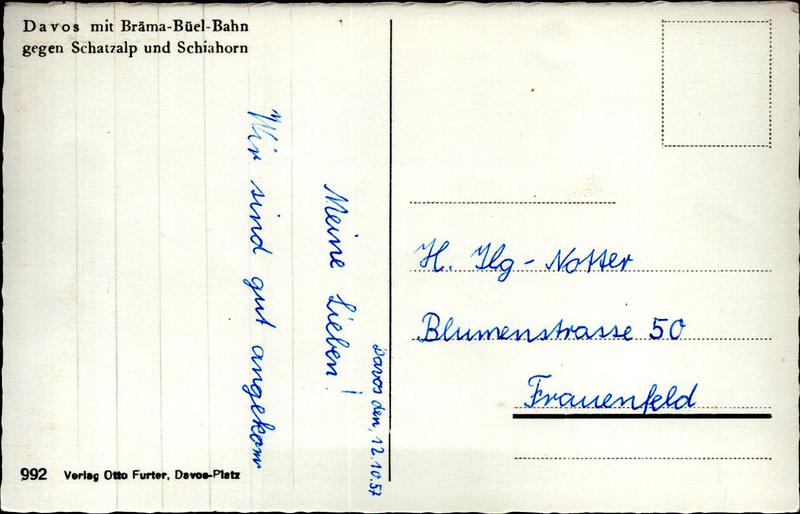 Davos mit Bräma-Büel-Bahn
gegen Schatzalp und Schiahorn
Davos den, 12.10.57
Meine Lieben!
Wir sind gut angekom
H. Ilg - Notter
Blumenstrasse 50
Frauenfeld
992 Verlag Otto Furter, Davos-Platz